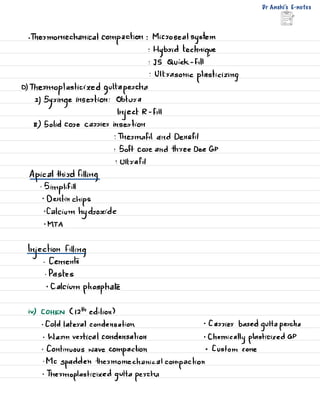 Dr Anshi's E-notes
•Thermomechanical compaction : Microseal system
: Hybrid technique
: JS Quick-fill
: Ultrasonic plasticizing
D) Thermoplasticized guttapercha
I) Syringe insertion: Obtura
Inject R-fill
II) Solid core carrier insertion
: Thermafil and Densfil
• Soft core and three Dee GP
: Ultrafil
Apical third filling
• Simplifill
• Dentin chips
•Calcium hydroxide
•MTA
Injection Filling
• Cements
• Pastes
• Calcium phosphate
iv) COHEN (12th edition)
•Cold lateral condensation
• Warm vertical condensation
• Continuous wave compaction
•Mc spadden thermomechanical compaction
• Thermoplasticized gutta percha
• Carrier based gutta percha
•Chemically plasticized GP
• Custom cone